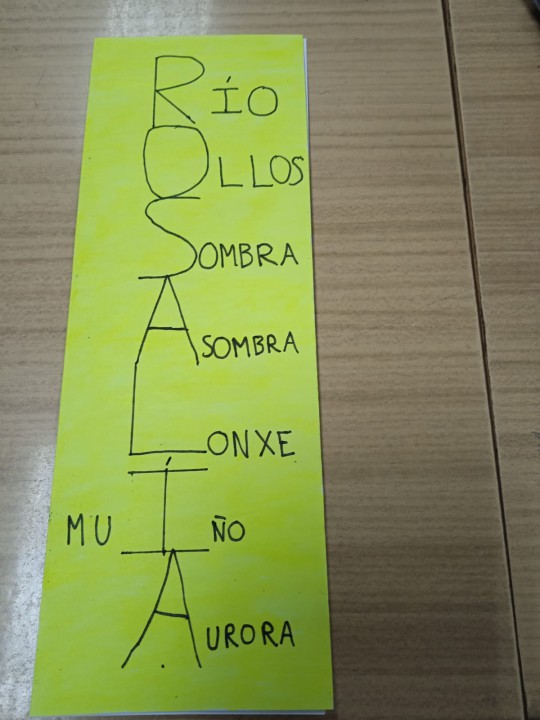 RÍO
OLLOS
SOMBRA
ASOMBRA
LONXE
MUÍÑO
AURORA